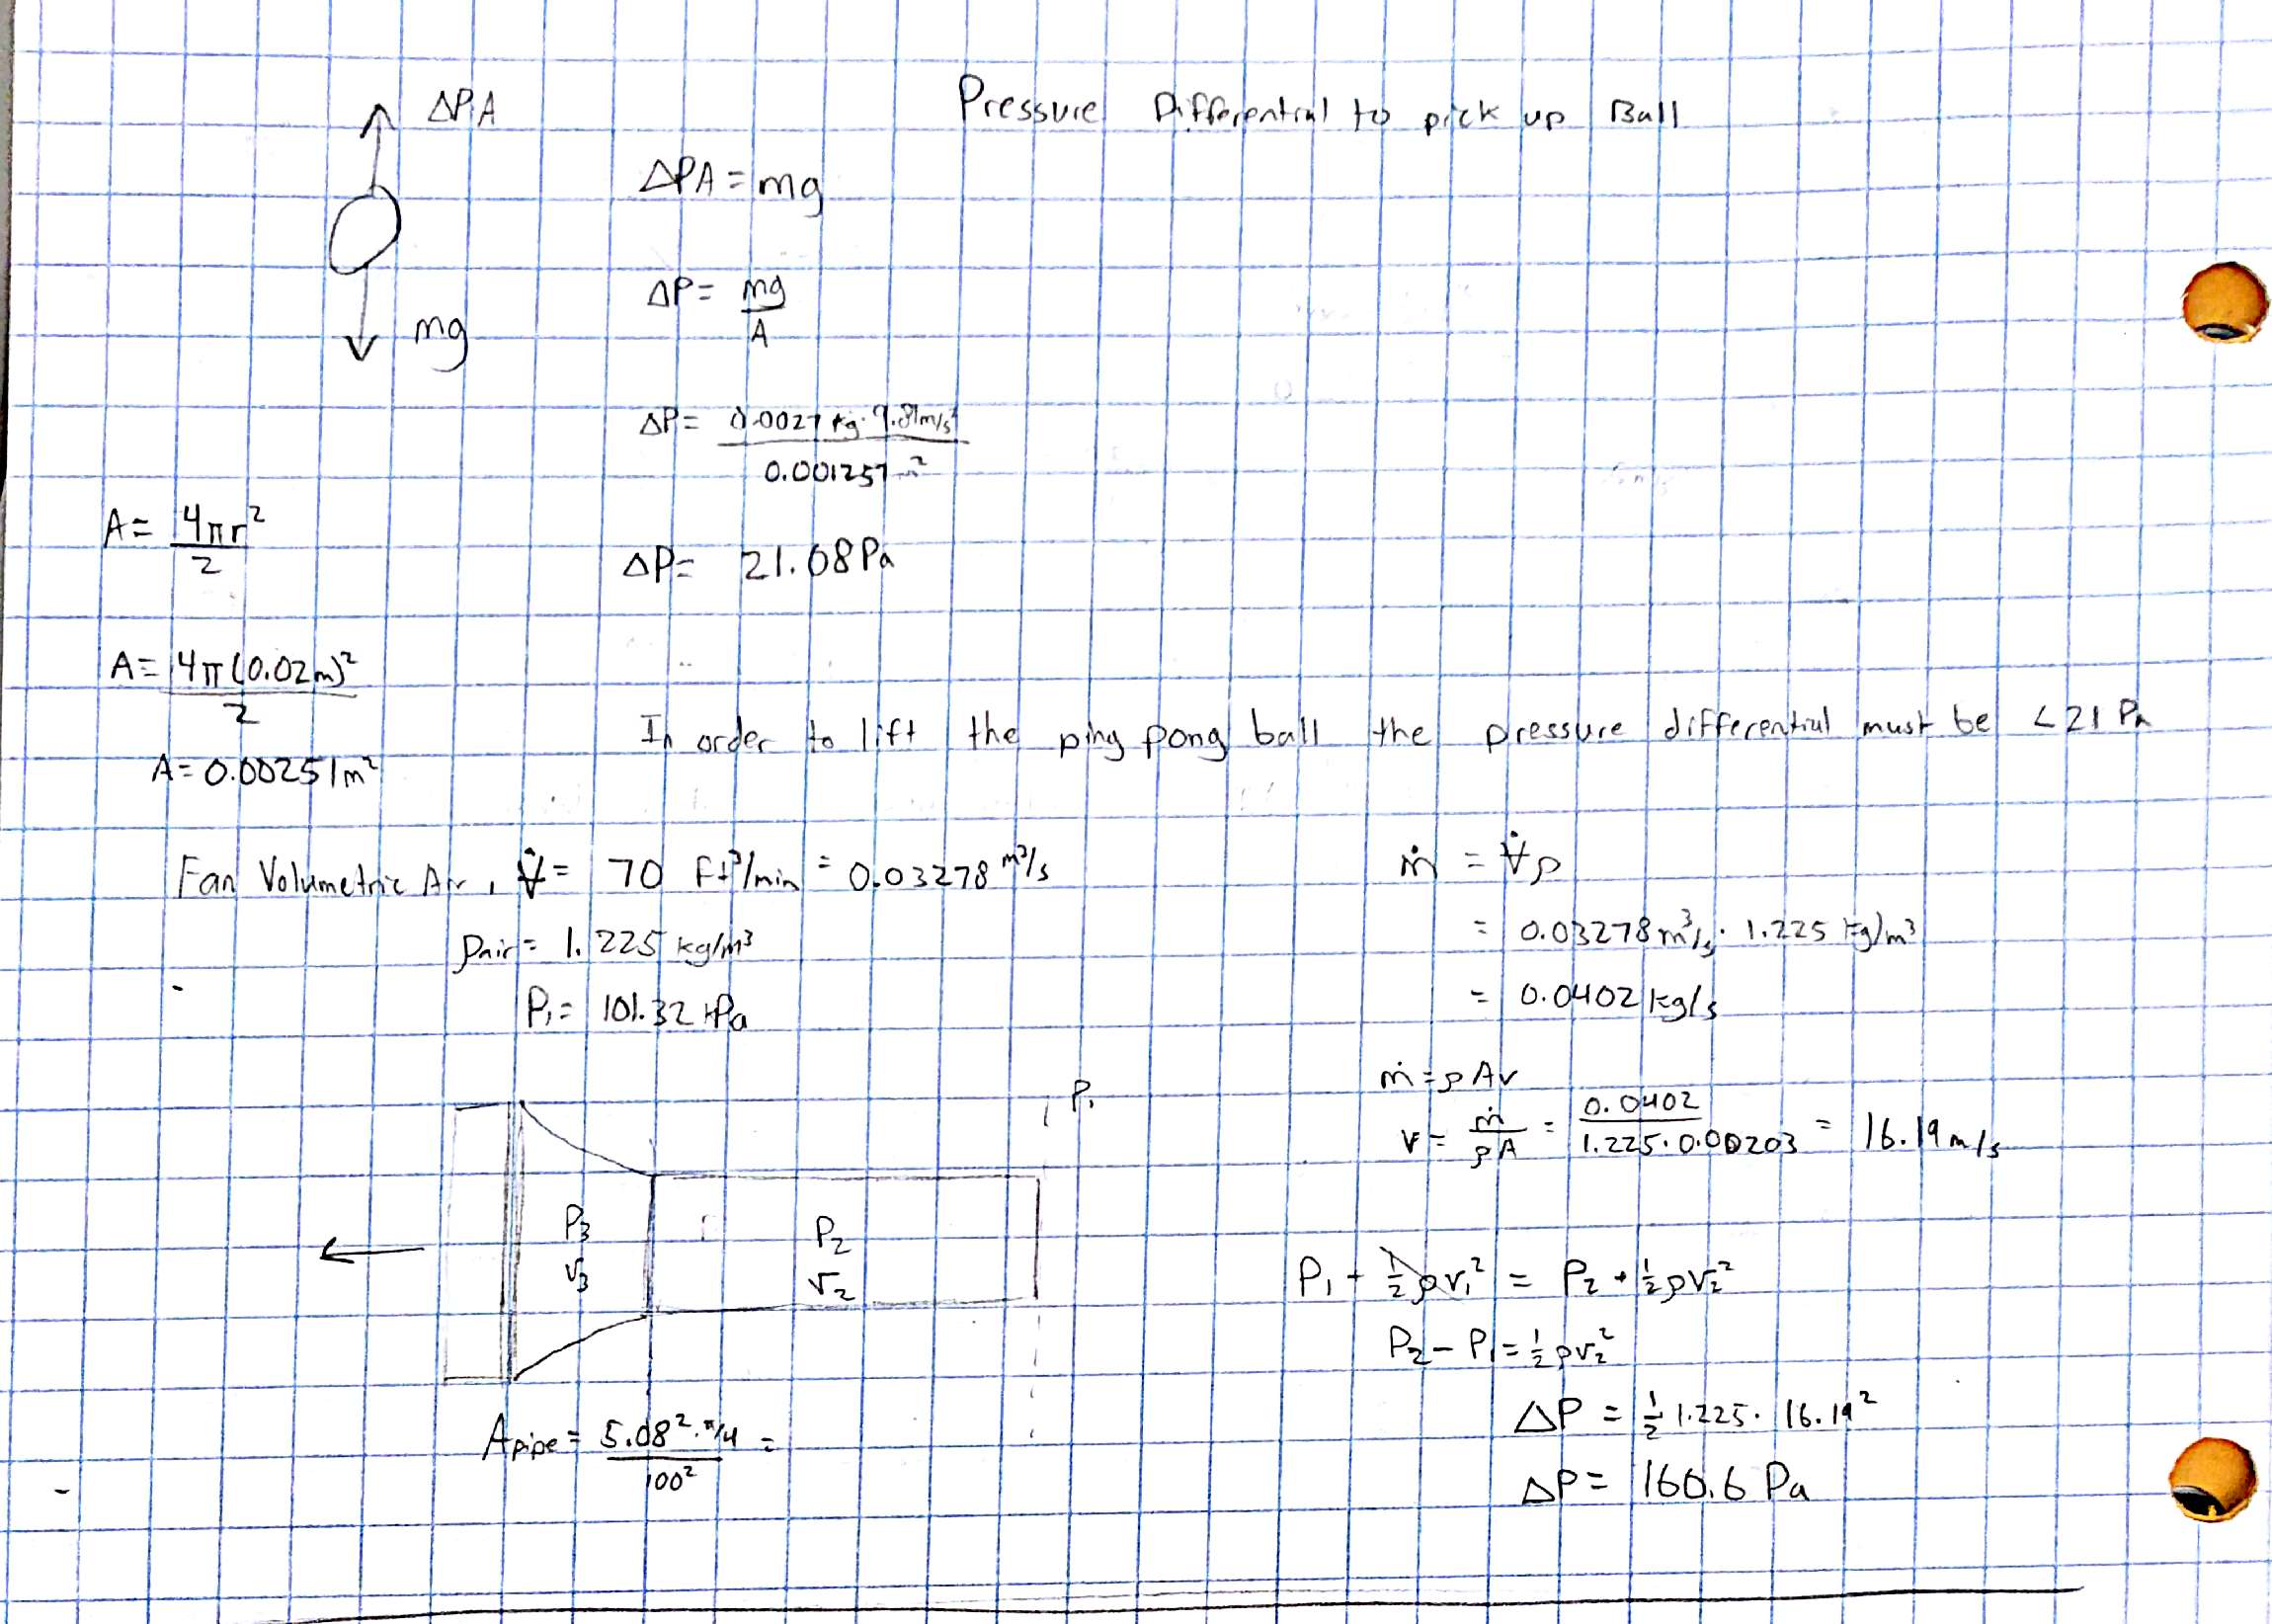 Pressure Differential to pick up Ball
ΔPA
mg
ΔPA = mg
ΔP = mg/A
ΔP = 0.0027 kg · 9.81m/s² / 0.001257 m²
ΔP = 21.08 Pa
A = 4πr²/2
A = 4π(0.02m)²/2
A = 0.00251m²
In order to lift the ping pong ball the pressure differential must be < 21 Pa
Fan Volumetric Air, V̇ = 70 Ft³/min = 0.03278 m³/s
ρair = 1.225 kg/m³
P₁ = 101.32 kPa
ṁ = V̇ρ
= 0.03278 m³/s · 1.225 kg/m³
= 0.0402 kg/s
ṁ = ρAv
v = ṁ/ρA = 0.0402/1.225·0.00203 = 16.19 m/s
P₁
P₃
v₃
P₂
v₂
Apipe = 5.08²·π/4 / 100² =
P₁ + ½ρv₁² = P₂ + ½ρv₂²
P₂ - P₁ = ½ρv₂²
ΔP = ½ 1.225 · 16.19²
ΔP = 160.6 Pa